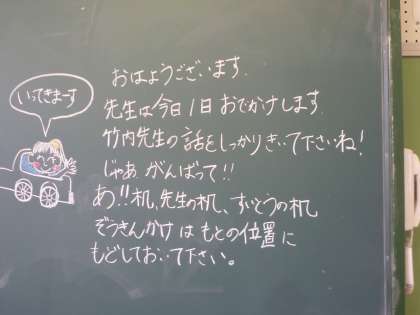 いってきまーす
おはようございます.
先生は今日1日おでかけします.
竹内先生の話をしっかりきいて下さいね!
じゃあ がんばって!!
あ!!机、先生の机、すいとうの机
ぞうきんかけ は もとの位置に
もどしておいて下さい。